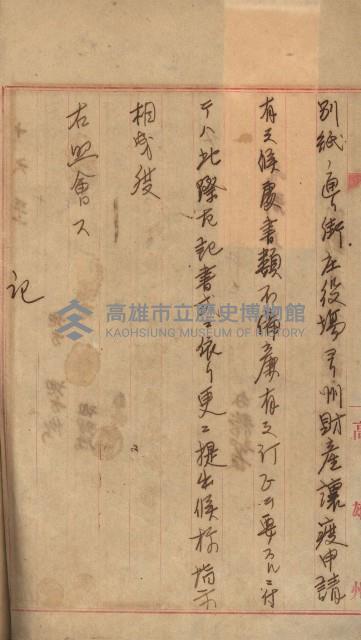 別紙ノ通リ街庄役場ヨリ州財產讓渡申請
有之候處書類不備ノ廉有之訂正ヲ要スルニ付
テハ此際左記書式ニ依リ更ニ提出候樣指示
相成度
右照會ス
記
高雄州
高雄市立歷史博物館
KAOHSIUNG MUSEUM OF HISTORY